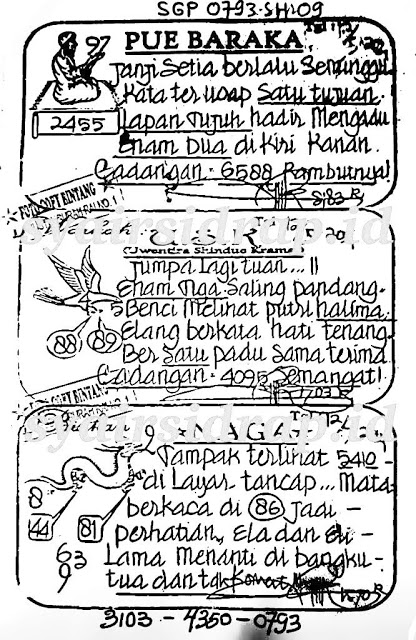 SGP 0793·SH·09
97 PUE BARAKA
Janji Setia berlalu Seminggu
Kata terucap Satu tujuan.
2455 Lapan Tujuh hadir Mengadu
Enam Dua di Kiri Kanan.
Cadangan· 6588 Rambutnya!
SOFT BINTANG
(Jwendra Shindue Krama)
Jumpa lagi tuan... !!
Enam Tiga Saling pandang.
5 Benci Melihat putri halima
Elang berkata hati tenang
88 89 Ber Satu padu Sama terima
Cadangan· 4095 Semangat!
SOFT BINTANG
9 NAGA
Tampak terlihat 5210 -
di Layar tancap... Mata-
8 berkaca di 86 Jadi -
44 81 perhatian, Ela dan Eli -
63 Lama Menanti di bangku -
9 tua dan tak
3103 - 4350 - 0793
syairsidrap.id
syairsidrap.id